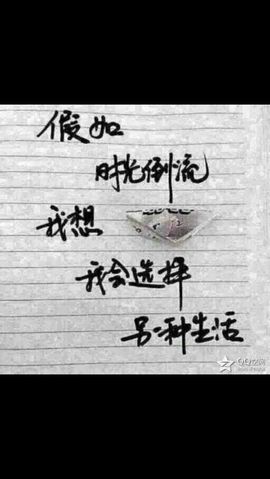 假如
时光倒流
我想
我会选择
另一种生活
QQ空间